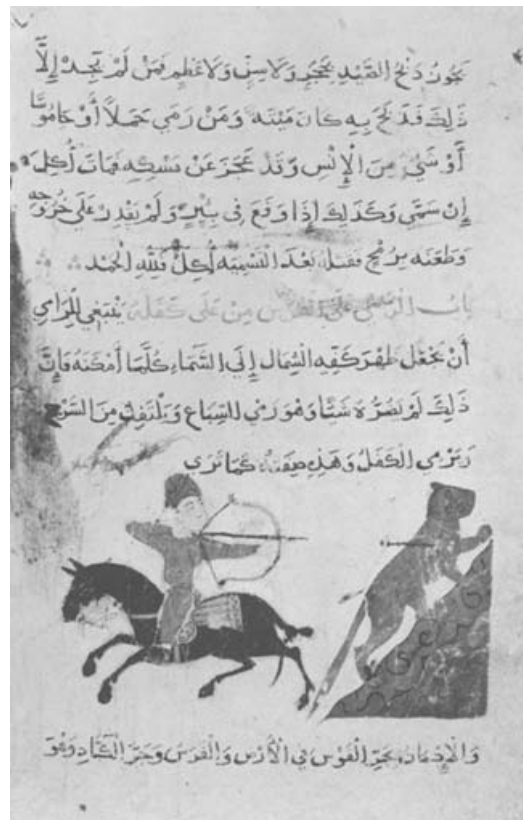 يجوز ذبح الصَّيْدِ بحجرٍ ولا سِنٍّ ولا عَظمٍ فمَنْ لَمْ يَجِدْ إِلَّا
ذلك فذبح به كان مَيْتَه وَمَنْ رَمَى جَمَلًا أَوْ جَامُوسًا
أَوْ شَيْء مِنَ الْإِنْسِ وَقَدْ عَجَزَ عَنْ مَسْكِه فَمَاتَ أُكِلَ
إِنْ سَمَّى وَكَذلِكَ إِذَا وَقَعَ فِى بِيْرٍ وَلَمْ يَقْدِرْ عَلَى خُرُوجِه
وَطَعَنَه بِرُمْحٍ فَقَتله بَعْدَ التَّسْمِيَه أُكِلَ وَللهِ الْحَمْد
بَابُ الرَّمْي عَلَى الفَرَس مِنْ عَلَى كَفَلِهِ يَنْبَغِي لِلرَّامِي
أَنْ يَجْعَلَ ظَهْرَ كَفِّهِ الشِّمَالِ إِلَى السَّمَاءِ كُلَّمَا أَمْكَنَهُ فَإِنَّ
ذَلِكَ لَمْ يَضُرُّهُ شَيْئًا وَهُوَ رَمْيُ السِّبَاعِ وَيَلْتَفِتُ مِنَ السَّرْجِ
وَيَرْمِي الْكَفَلَ وَهَذِهِ صِفَتُهُ كَمَا تَرَى
بِجَرِّ الْقَوْسِ فِي الْأَرْضِ وَالْفَرَسِ وَجَرِّ وَهُوَ